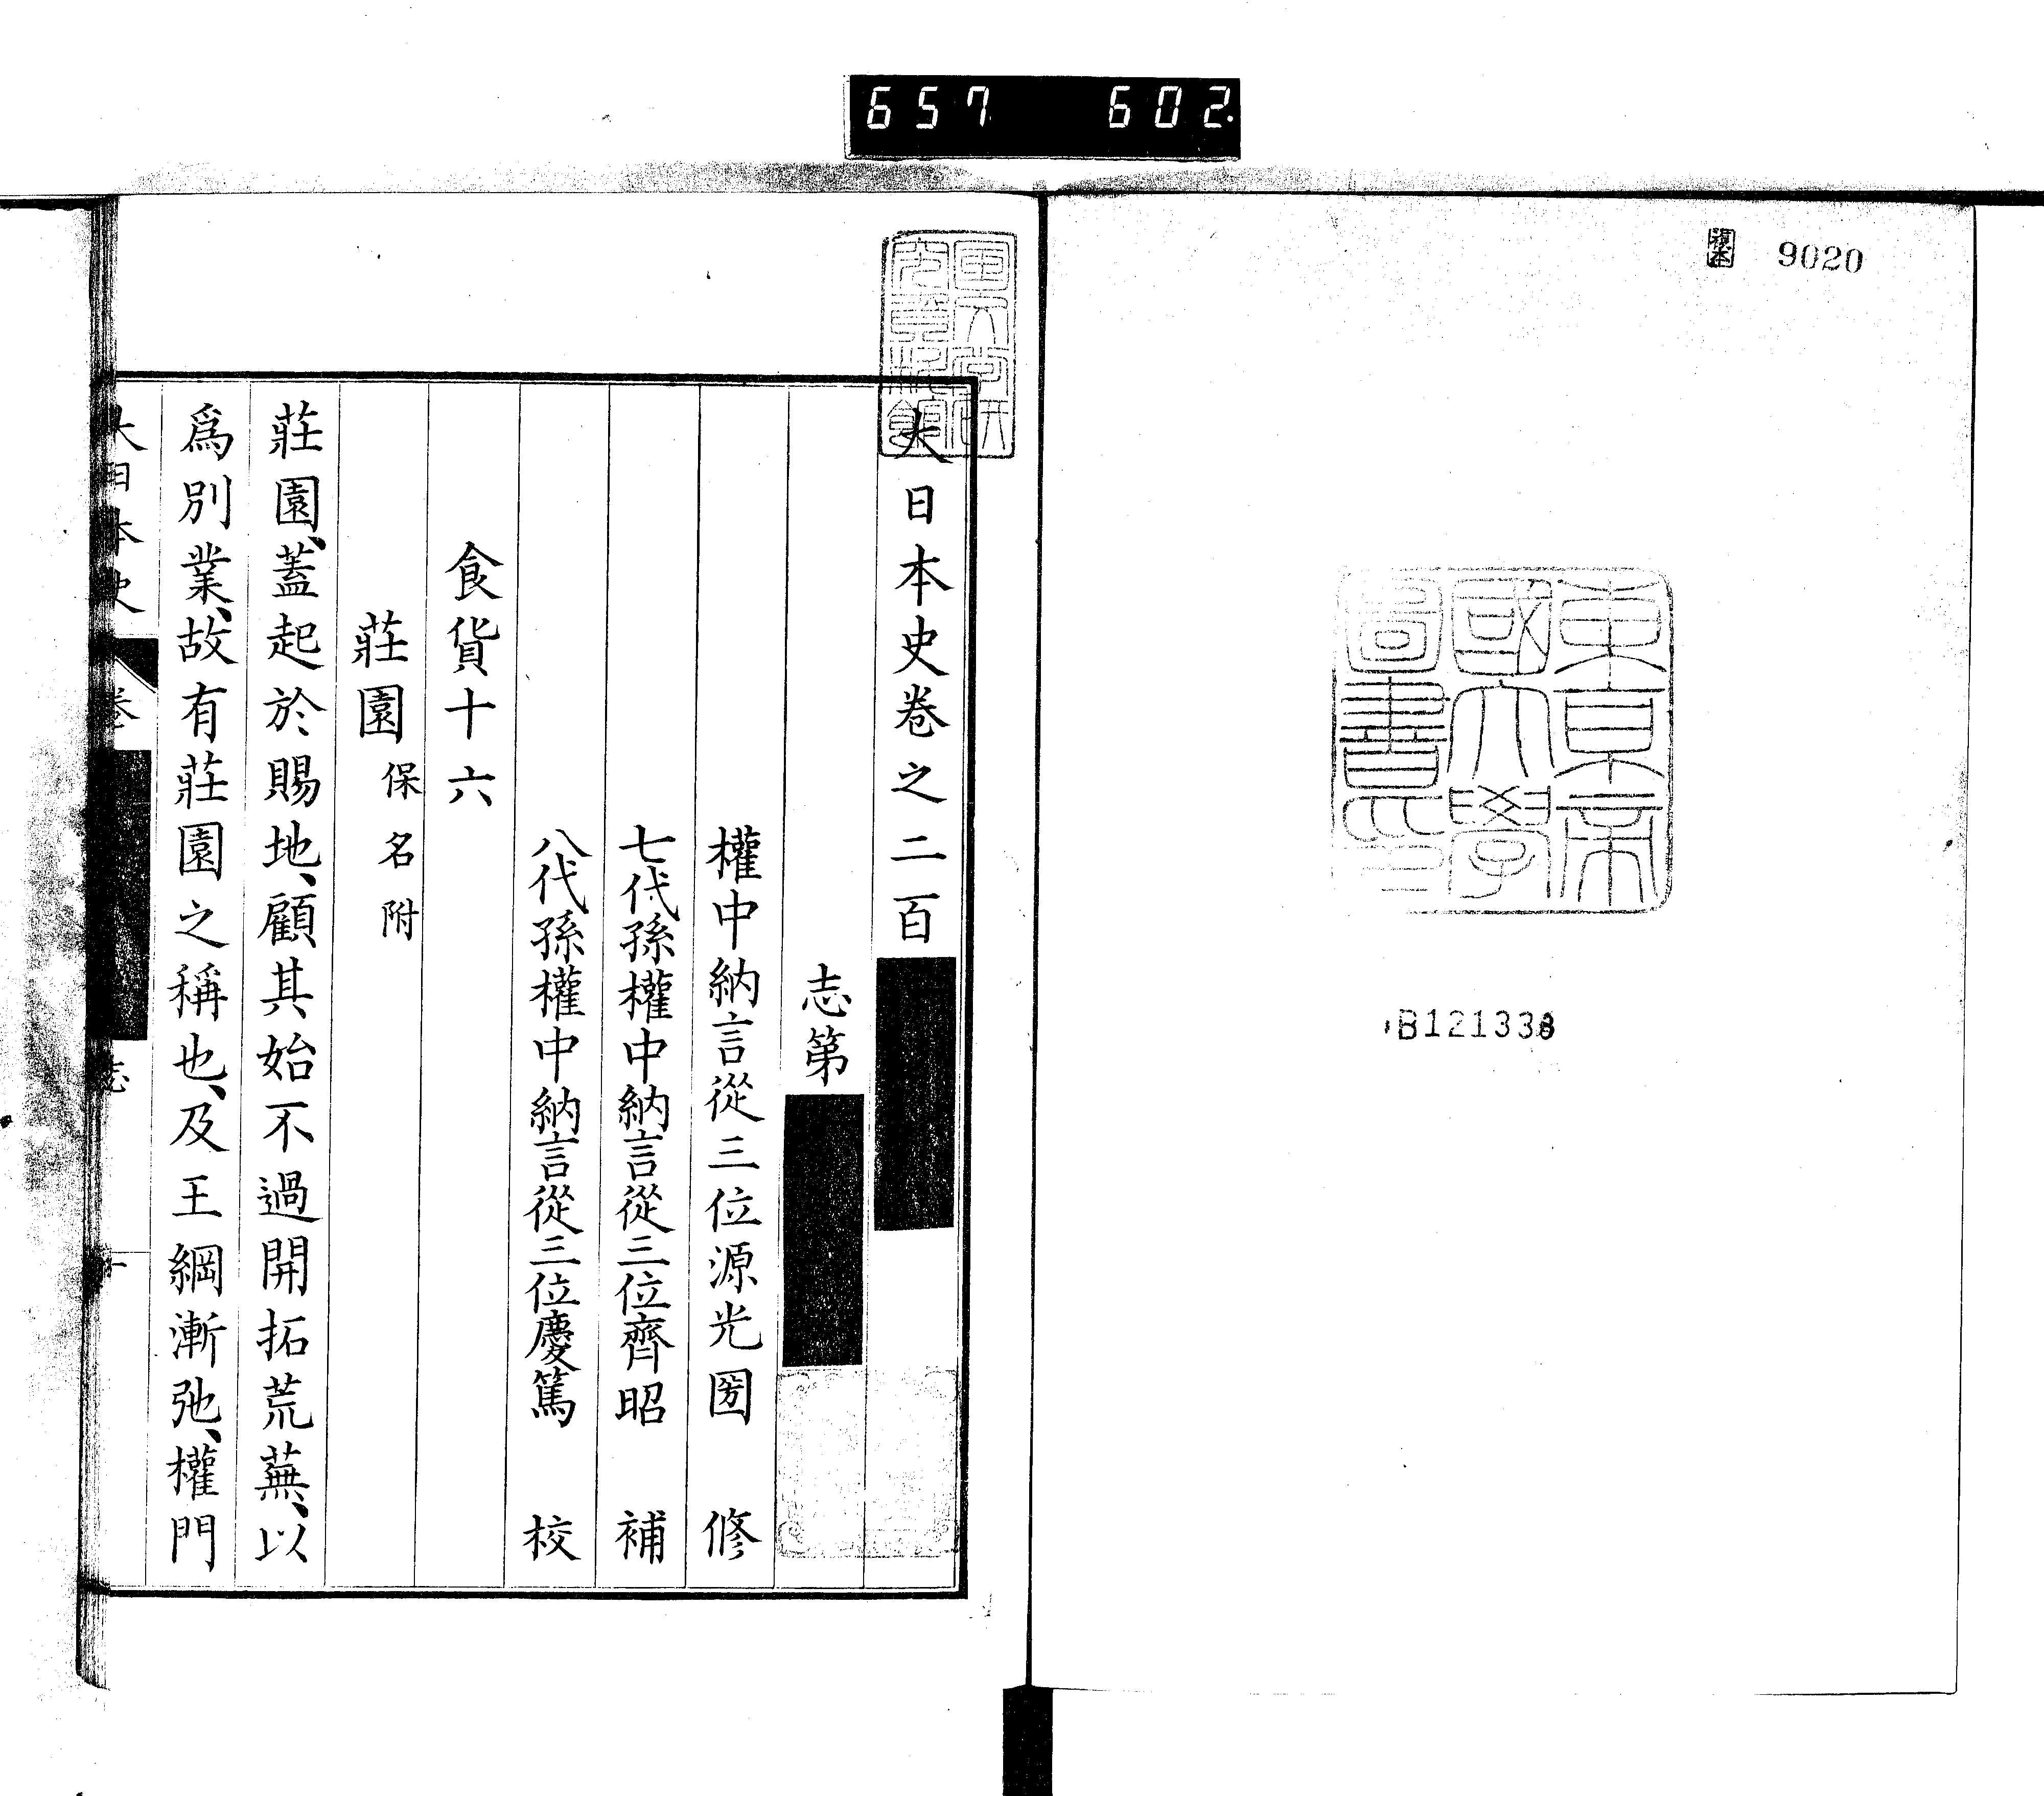 657 602.
複本
9020
東京帝
國大學
圖書印
B121338
大日本史卷之二百
志第
權中納言從三位源光圀 修
七代孫權中納言從三位齊昭 補
八代孫權中納言從三位慶篤 校
食貨十六
莊園 保名附
莊園、蓋起於賜地、顧其始不過開拓荒蕪、以
爲別業、故有莊園之稱也、及王綱漸弛、權門
大日本史 卷 志